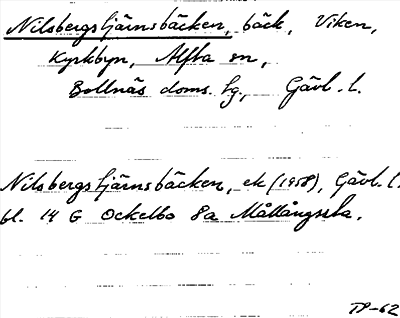 Nilsbergstjärnsbäcken, bäck, Viken,
Kyrkbyn, Alfta sn,
Bollnäs doms. hg, Gävl. l.
Nilsbergstjärnsbäcken, ek (1958), Gävl. l.
bl. 14 G Ockelbo 8a Mållångssta.
TP-62